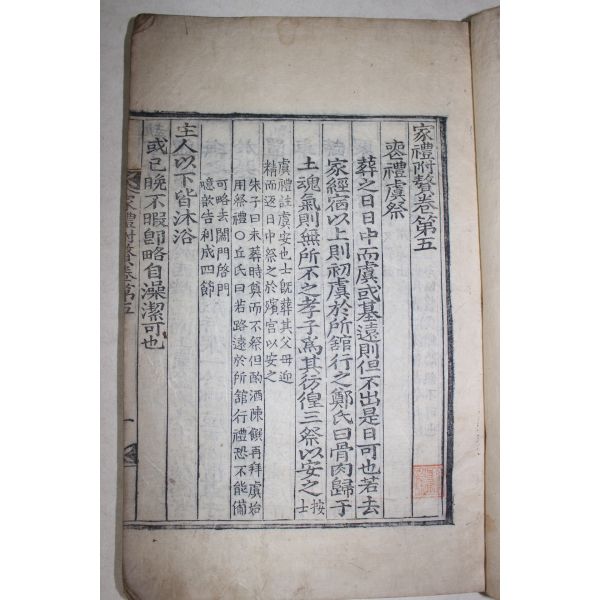 家禮附贅卷第五
喪禮虞祭
葬之日日中而虞或墓遠則但不出是日可也若去
家經宿以上則初虞於所館行之鄭氏曰骨肉歸于
土魂氣則無所不之孝子爲其彷徨三祭以安之 按士
虞禮註虞安也士旣葬其父母迎
精而返日中祭之於殯宮以安之
朱子曰未葬時奠而不祭但酌酒陳饌再拜虞始
用祭禮○丘氏曰若路遠於所館行禮恐不能備
可略去闔門啓門
噫歆告利成四節
主人以下皆沐浴
或已晩不暇卽略自澡潔可也
家禮附贅卷第五 一